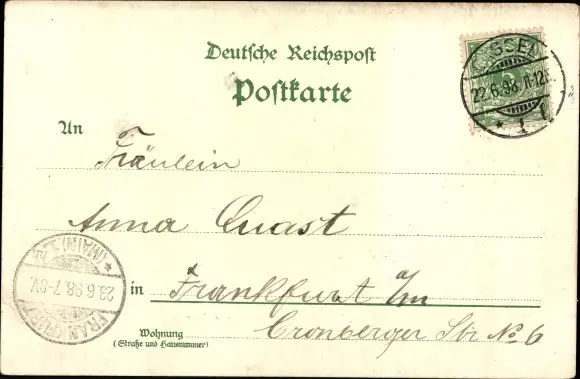 Deutsche Reichspost
Postkarte
SSEL
22.6.98.11-12
* 1
An
Fräulein
Anna Quast
in Frankfurt a/m
Wohnung
(Straße und Hausnummer)
Cronberger Str No 6
FRANKFURT
23.6.98.7-8V.
(MAIN) 1.